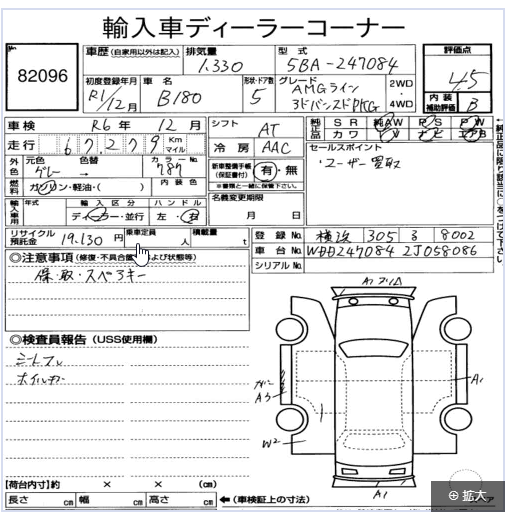 輸入車ディーラーコーナー
No. 82096
車歴 (自家用以外は記入) 排気量 型式 評価点
1.330 5BA-247084 4.5
初度登録年月 車名 形状・ドア数 グレード
R1/12月 B180 5 AMGライン 2WD・4WD
内装補助評価 B
車検 R6年 12月 シフト AT 純正品 SR 純AW PS PW
走行 67,279 Km マイル 冷房 AAC カワ TV ナビ エアB
外色 元色 色替 カラーNo.
グレー → 787
新車整備手帳(保証書付) 有・無
※書類と一緒に保管下さい。
セールスポイント
・ユーザー買取
燃料 ガソリン・軽油・( ) 内装色
名義変更期限
月 日
輸入車用 年式 輸入区分 ハンドル
ディーラー・並行 左・右
リサイクル預託金 19.130 円 乗車定員 人 積載量 t
登録No. 横浜 305 8002
車台No. WDD2470842J058086
シリアルNo.
◎注意事項(修復・不具合箇所および状態等)
保・取・スペアキー
◎検査員報告(USS使用欄)
シートスレ
A1
A3
A1
W2
A1
【荷台内寸】約 × × (cm)
長さ cm 幅 cm 高さ cm ←(車検証上の寸法)
←純正品に限り該当に○をつけて下さい
拡大